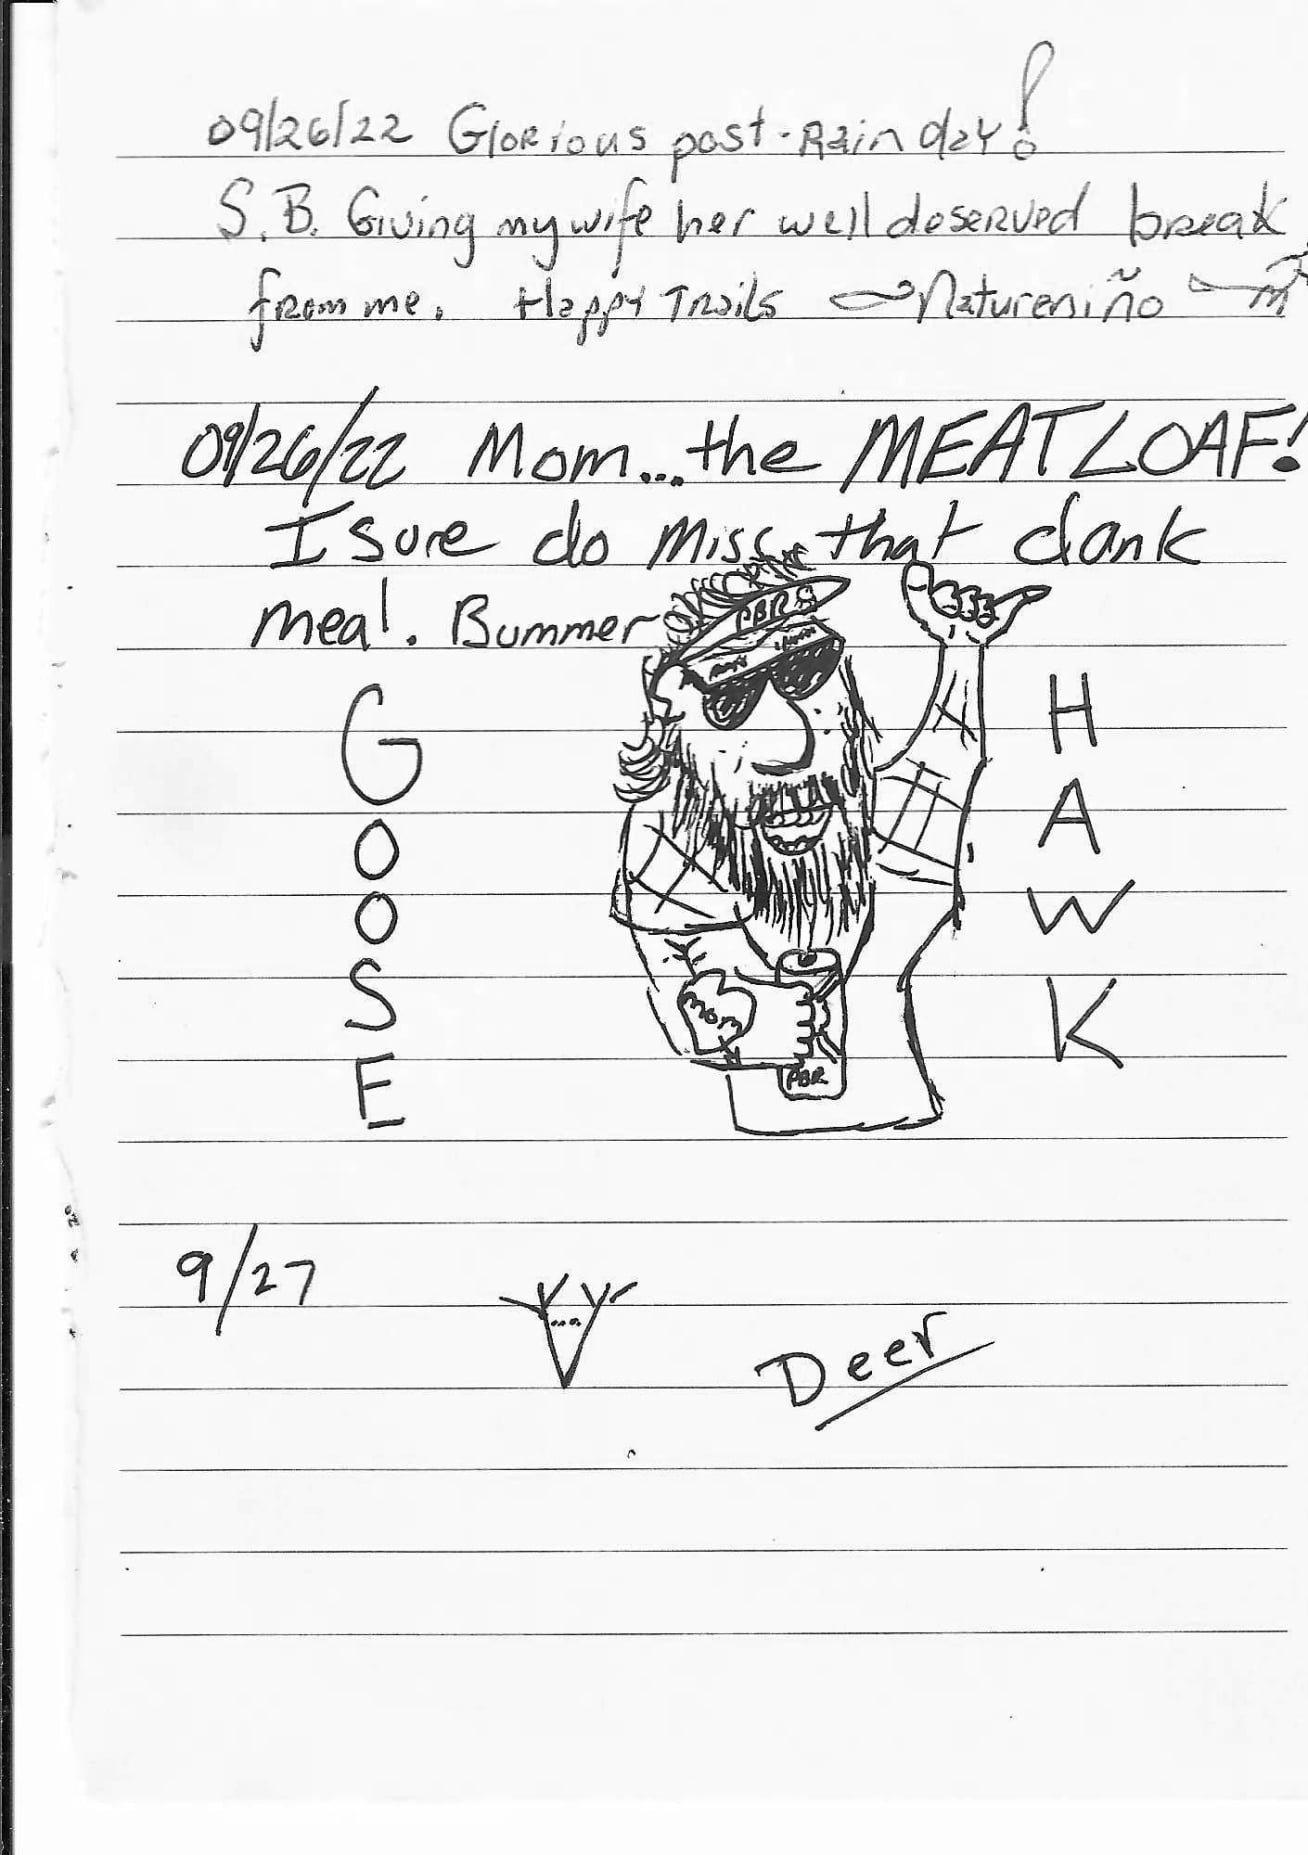 09/26/22 Glorious post-Rain day!
S.B. Giving my wife her well deserved break
from me. Happy Trails Natureniño
09/26/22 Mom...the MEATLOAF!
I sure do miss that dank
meal. Bummer
PBR
GOOSE
HAWK
mom
PBR
9/27
Deer